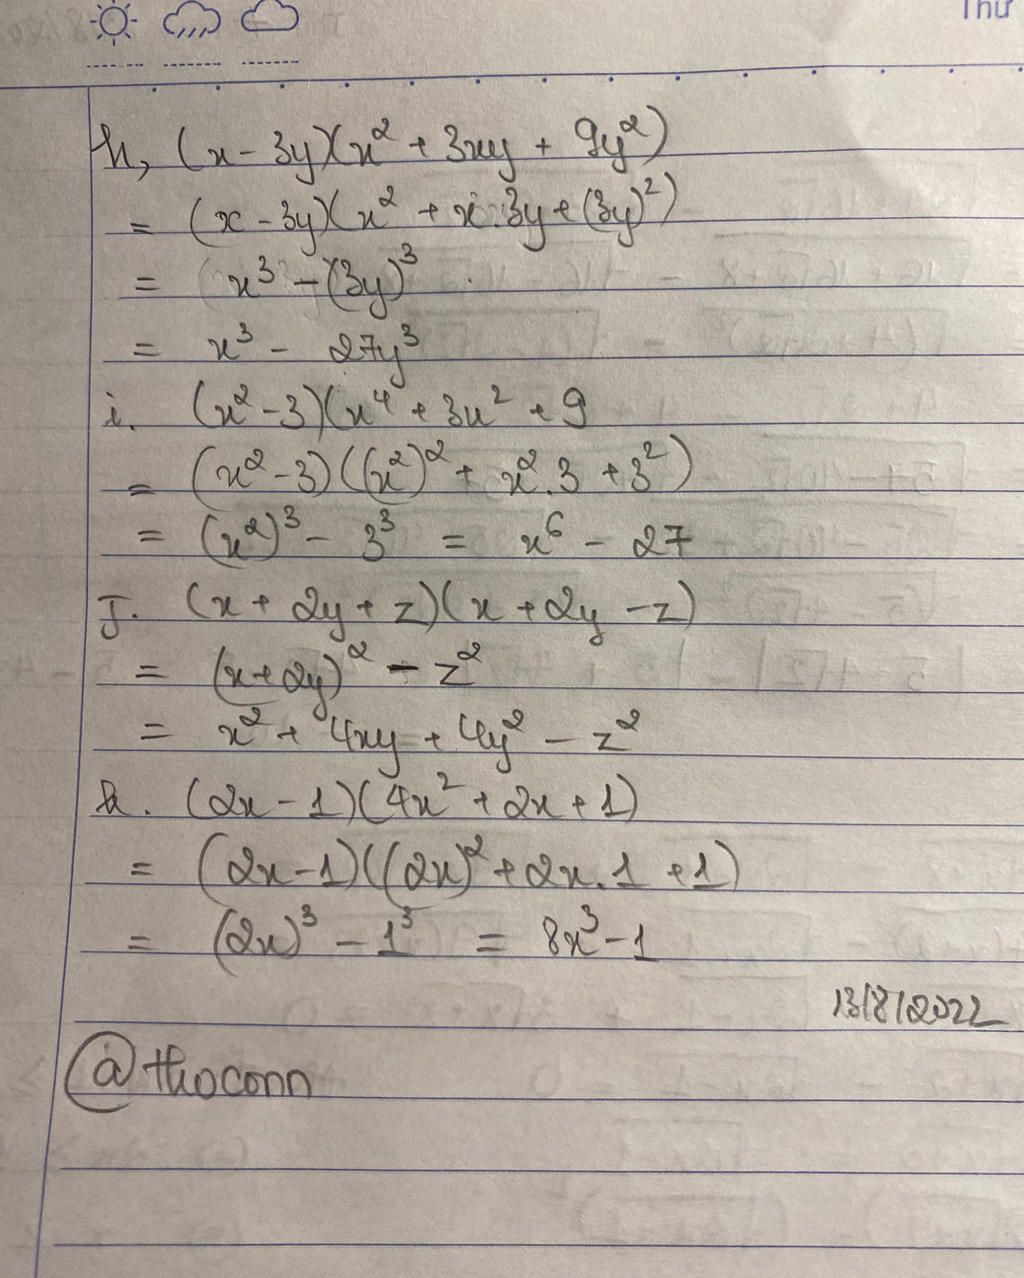 Thứ
h, (x - 3y)(x² + 3xy + 9y²)
= (x - 3y)(x² + x.3y + (3y)²)
= x³ - (3y)³
= x³ - 27y³
i. (x² - 3)(x⁴ + 3x² + 9
= (x² - 3)((x²)² + x².3 + 3²)
= (x²)³ - 3³ = x⁶ - 27
J. (x + 2y + z)(x + 2y - z)
= (x + 2y)² - z²
= x² + 4xy + 4y² - z²
k. (2x - 1)(4x² + 2x + 1)
= (2x - 1)((2x)² + 2x.1 + 1)
= (2x)³ - 1³ = 8x³ - 1
13/8/2022
@thoconn